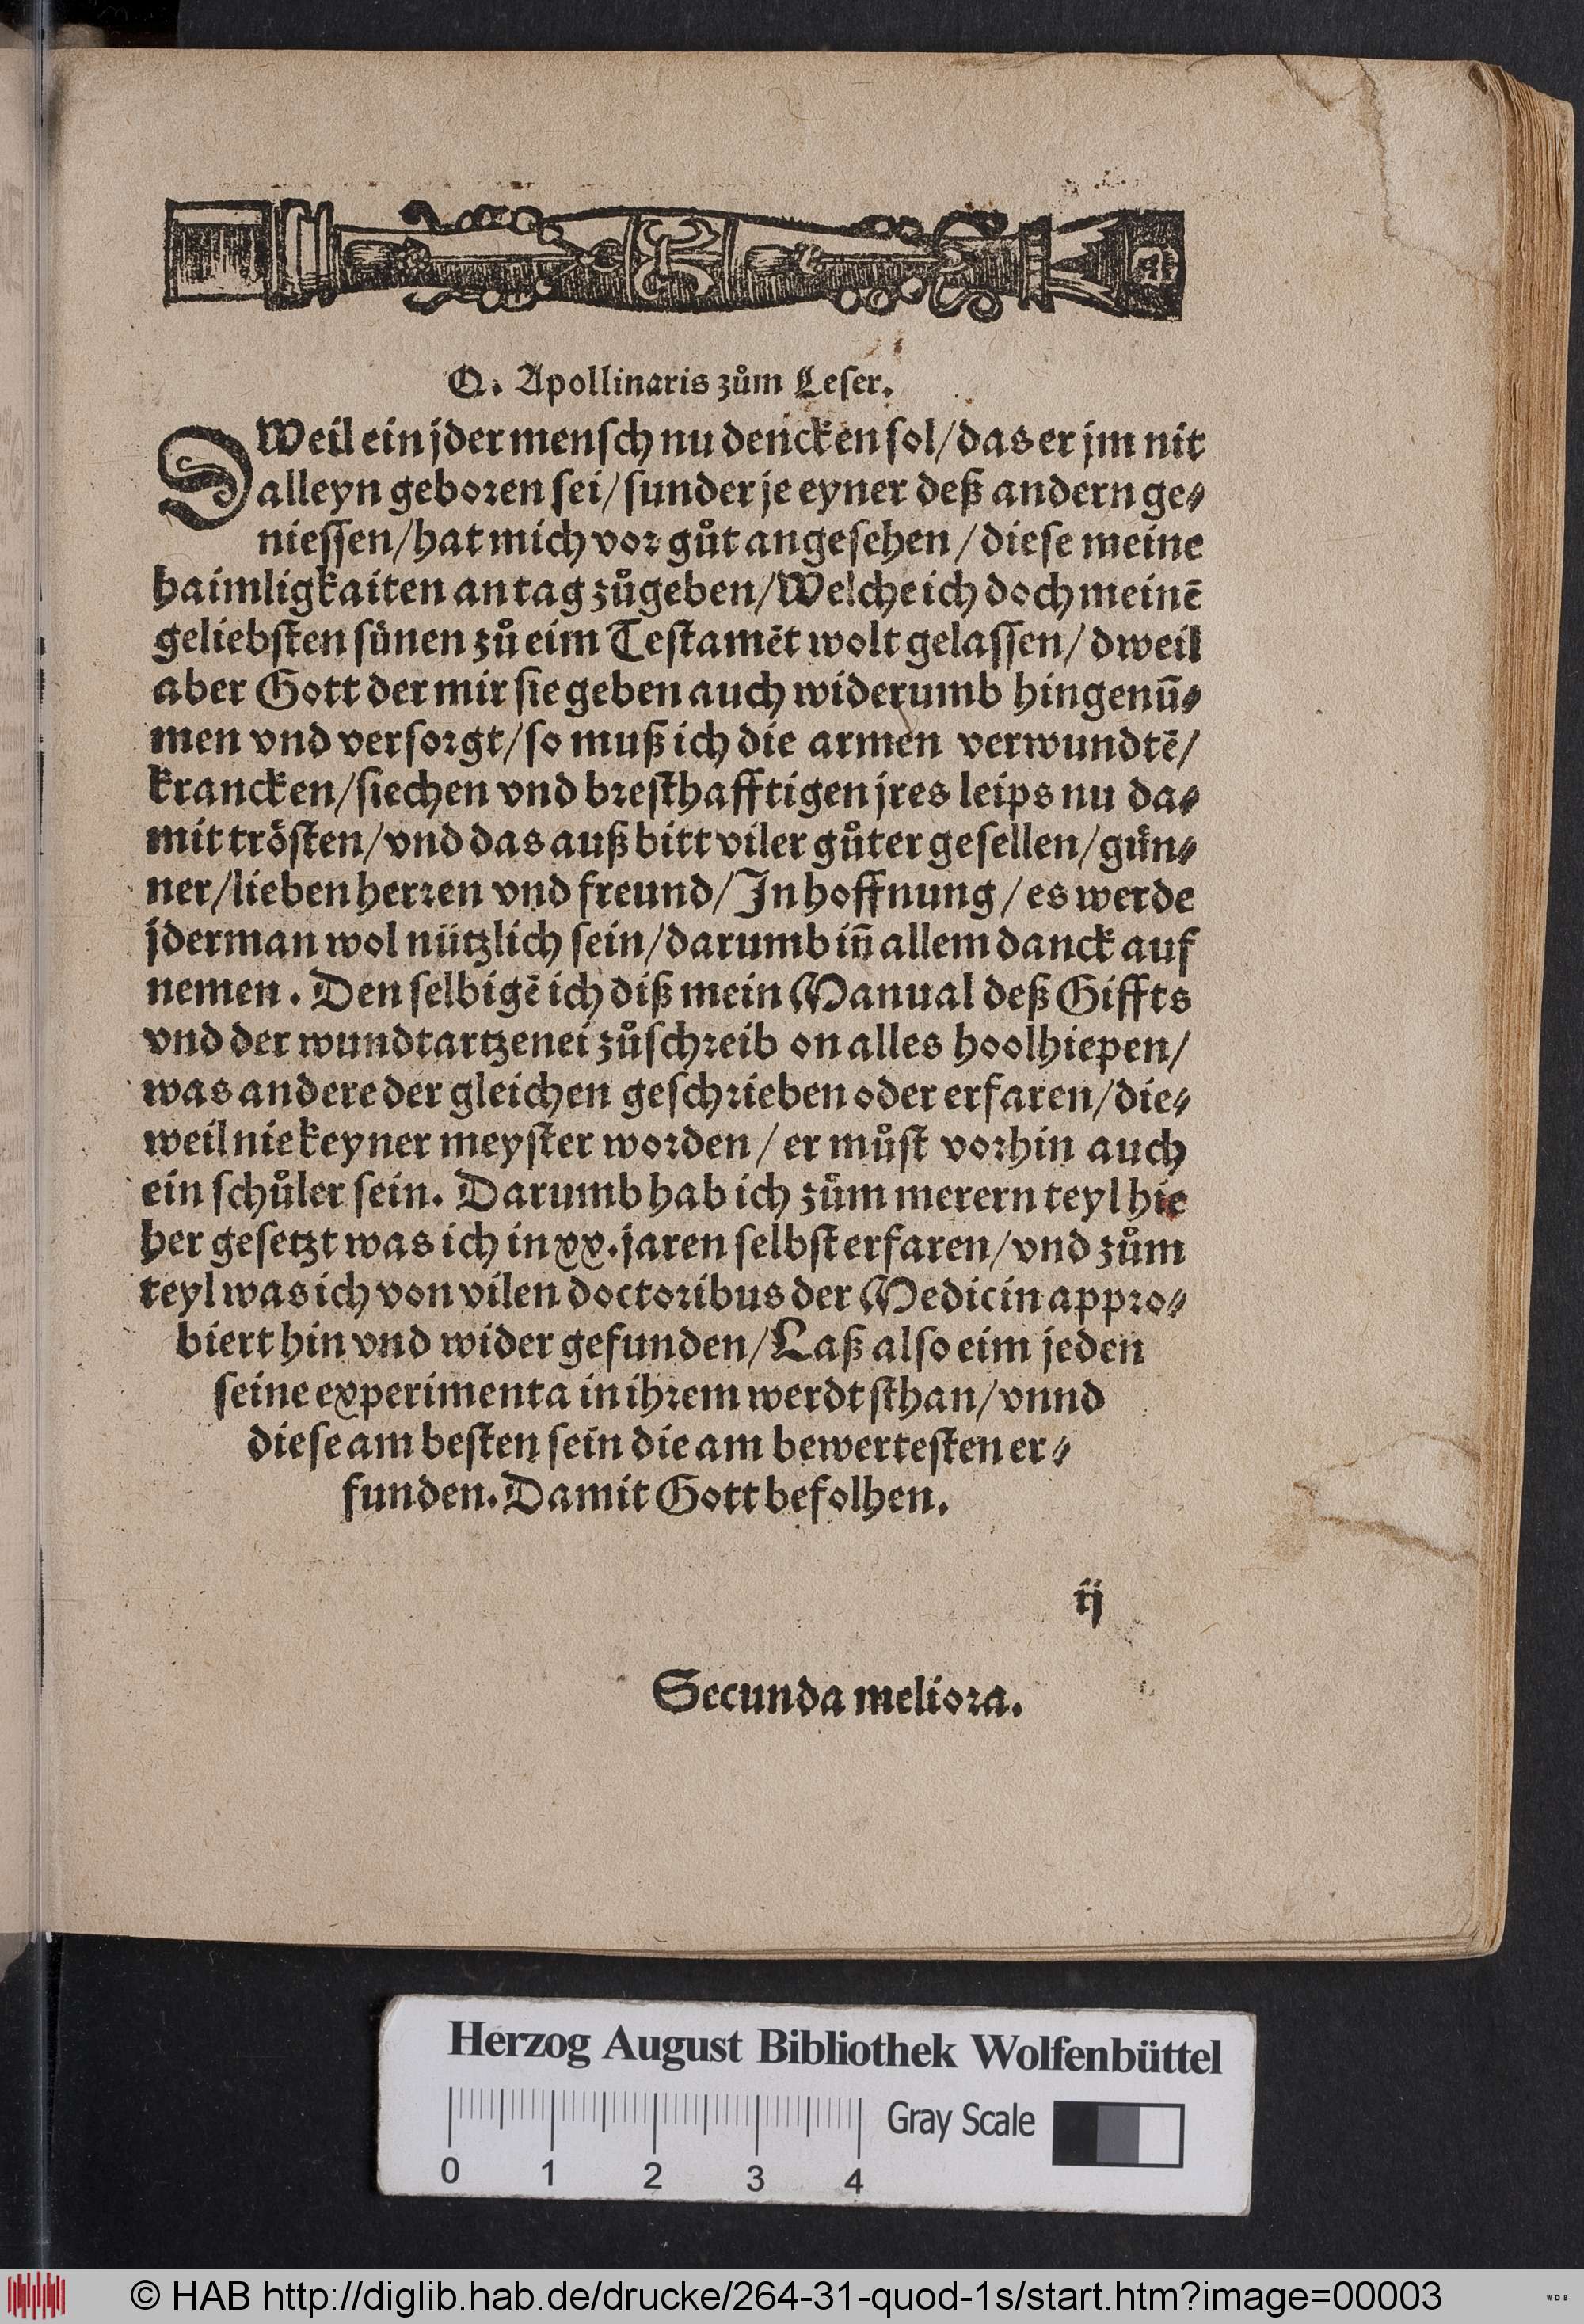 Q. Apollinaris zům Leser.
DWeil ein jder mensch nu dencken sol/das er jm nit
alleyn geboren sei/sunder je eyner deß andern ge⸗
niessen/hat mich vor gůt angesehen/diese meine
haimligkaiten an tag zůgeben/Welche ich doch meinē
geliebsten sünen zů eim Testamēt wolt gelassen/dweil
aber Gott der mir sie geben auch widerumb hingenū⸗
men vnd versorgt/so muß ich die armen verwundtē/
krancken/siechen vnd bresthafftigen jres leips nu da⸗
mit trösten/vnd das auß bitt viler gůter gesellen/gün⸗
ner/lieben herren vnd freund/In hoffnung/es werde
jderman wol nützlich sein/darumb iñ allem danck auf
nemen. Den selbigē ich diß mein Manual deß Giffts
vnd der wundtartzenei zůschreib on alles hoolhiepen/
was andere der gleichen geschrieben oder erfaren/die⸗
weil nie keyner meyster worden/er můst vorhin auch
ein schůler sein. Darumb hab ich zům merern teyl hie
her gesetzt was ich in xx. jaren selbst erfaren/vnd zům
teyl was ich von vilen doctoribus der Medicin appro⸗
biert hin vnd wider gefunden/Laß also eim jeden
seine experimenta in ihrem werdt sthan/vnnd
diese am besten sein die am bewertesten er⸗
funden. Damit Gott befolhen.
ij
Secunda meliora.
Herzog August Bibliothek Wolfenbüttel
Gray Scale
0 1 2 3 4
© HAB http://diglib.hab.de/drucke/264-31-quod-1s/start.htm?image=00003
WDB